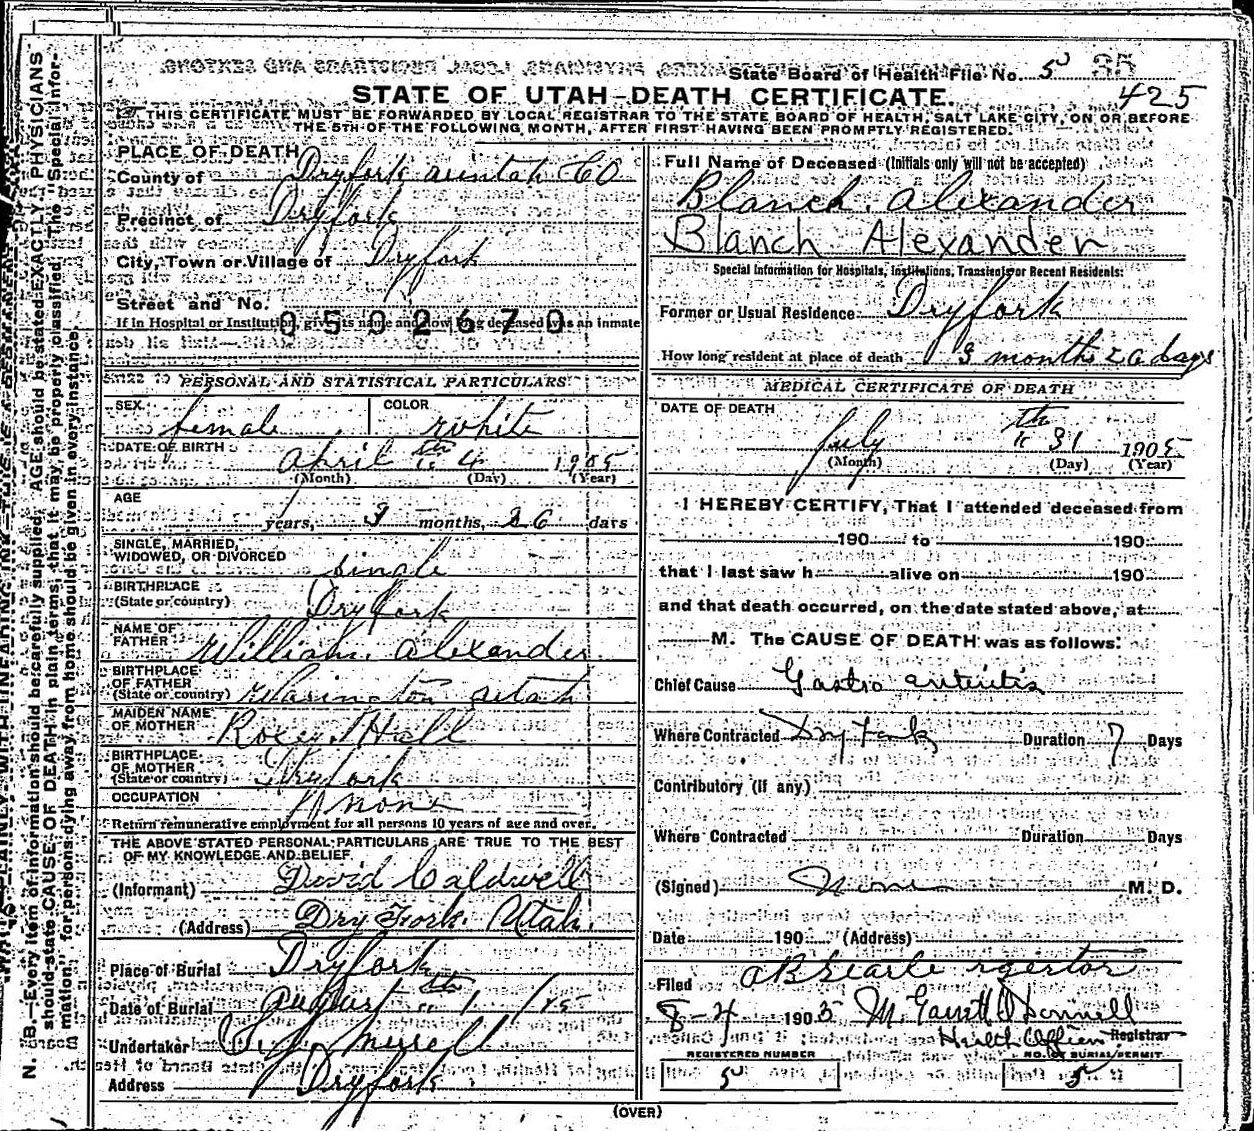 State Board of Health File No. 5 95
425
STATE OF UTAH-DEATH CERTIFICATE.
THIS CERTIFICATE MUST BE FORWARDED BY LOCAL REGISTRAR TO THE STATE BOARD OF HEALTH, SALT LAKE CITY, ON OR BEFORE
THE 5TH OF THE FOLLOWING MONTH, AFTER FIRST HAVING BEEN PROMPTLY REGISTERED.
PLACE OF DEATH
County of Dryfork uintah CO
Precinct of Dryfork
City, Town or Village of Dryfork
Street and No.
0502670
If in Hospital or Institution, give its name and how long deceased was an inmate
PERSONAL AND STATISTICAL PARTICULARS
SEX female COLOR white
DATE OF BIRTH april th 4 1905
(Month) (Day) (Year)
AGE
years, 3 months, 26 days
SINGLE, MARRIED,
WIDOWED, OR DIVORCED single
BIRTHPLACE
(State or country) Dryfork
NAME OF
FATHER William alexander
BIRTHPLACE
OF FATHER
(State or country) Wasington utah
MAIDEN NAME
OF MOTHER Roxey Hall
BIRTHPLACE
OF MOTHER
(State or country) Dryfork
OCCUPATION none
Return remunerative employment for all persons 10 years of age and over.
THE ABOVE STATED PERSONAL PARTICULARS ARE TRUE TO THE BEST
OF MY KNOWLEDGE AND BELIEF
(Informant) David Caldwell
(Address) Dry Fork. Utah.
Place of Burial Dryfork
Date of Burial august th 1
Undertaker
Address Dryfork
Full Name of Deceased (Initials only will not be accepted)
Blanch. alexander
Blanch Alexander
Special Information for Hospitals, Institutions, Transients or Recent Residents:
Former or Usual Residence: Dryfork
How long resident at place of death 3 months 26 days
MEDICAL CERTIFICATE OF DEATH
DATE OF DEATH
july th 31 1905
(Month) (Day) (Year)
I HEREBY CERTIFY, That I attended deceased from
190 to 190
that I last saw h alive on 190
and that death occurred, on the date stated above, at
M. The CAUSE OF DEATH was as follows:
Chief Cause Gastro enteritis
Where Contracted Dry Fork Duration 7 Days
Contributory (If any)
Where Contracted Duration Days
(Signed) None M. D.
Date 190 (Address)
Filed
8-4 1905
Health Officer Registrar
REGISTERED NUMBER NO. OF BURIAL PERMIT
5 5
(OVER)
N. B.—Every item of information should be carefully supplied. AGE should be stated EXACTLY. PHYSICIANS
should state CAUSE OF DEATH in plain terms, that it may be properly classified. The "Special Infor-
mation" for persons dying away from home should be given in every instance